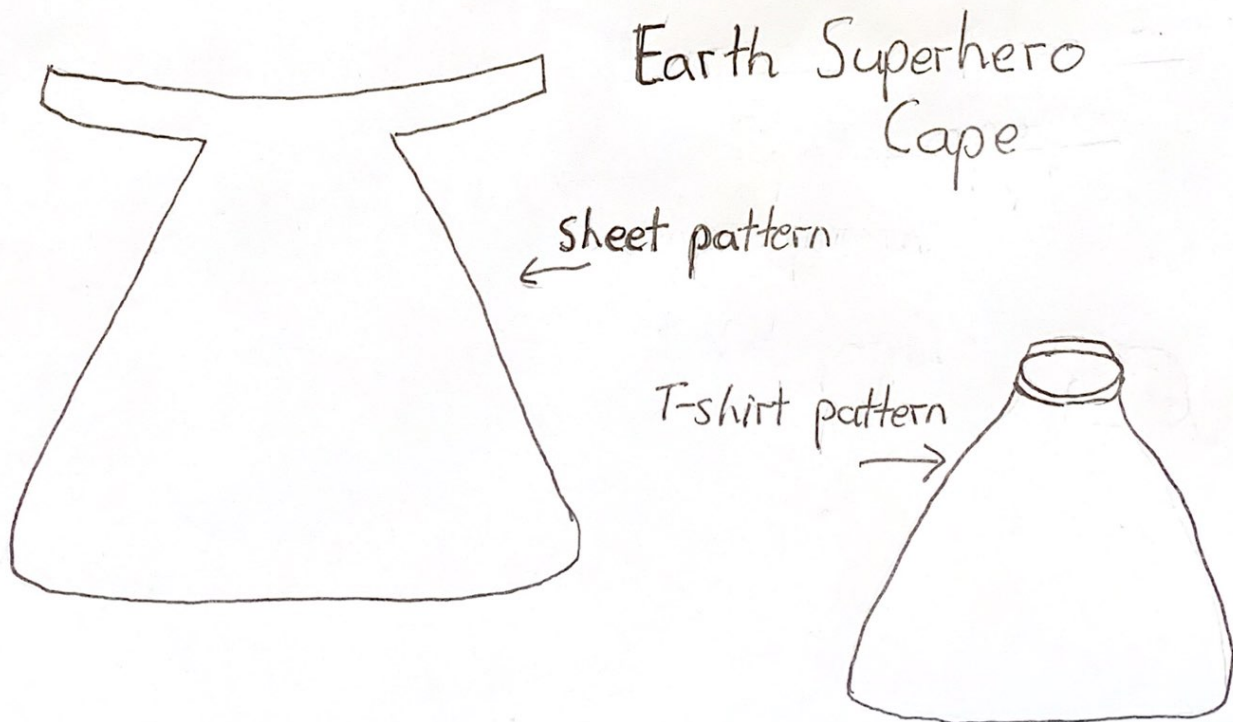 Earth Superhero
Cape
sheet pattern
T-shirt pattern